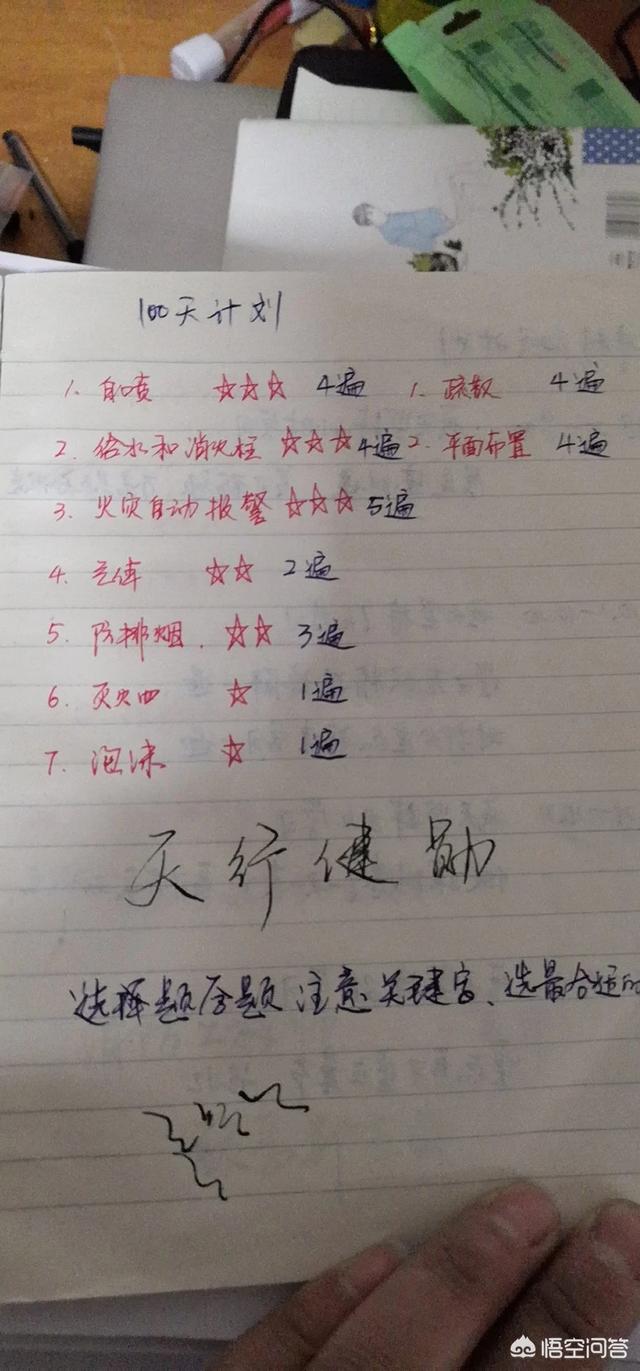 100天计划
1. 自喷 ☆☆☆ 4遍 1. 疏散 4遍
2. 给水和消火栓 ☆☆☆ 4遍 2. 平面布置 4遍
3. 火灾自动报警 ☆☆☆ 5遍
4. 气体 ☆☆ 2遍
5. 防排烟. ☆☆ 3遍
6. 灭火四 ☆ 1遍
7. 泡沫 ☆ 1遍
天行健勋
选择题答题注意关键字、选最合适的
悟空问答